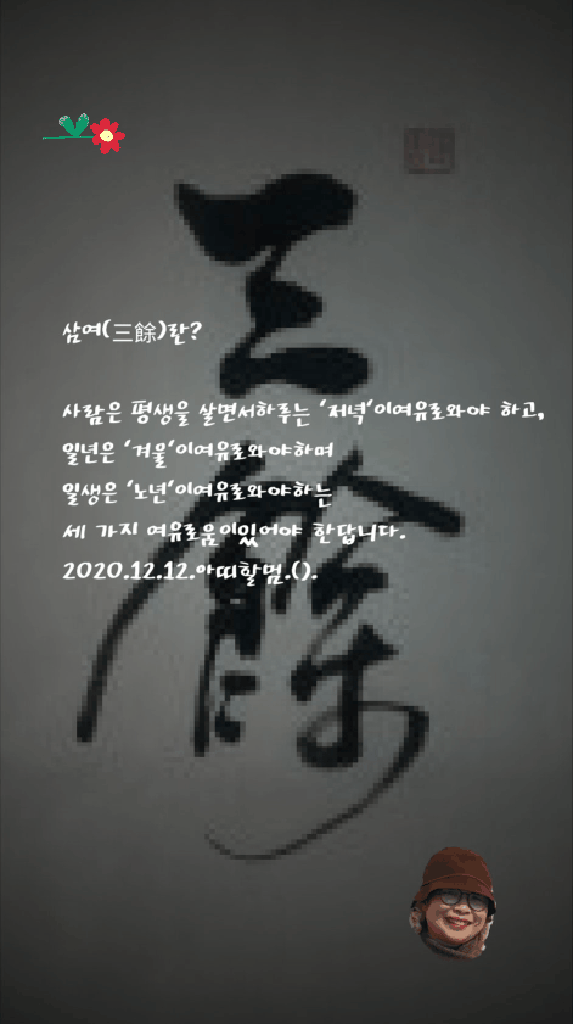 三
餘
삼여(三餘)란?
사람은 평생을 살면서하루는 '저녁'이여유로와야 하고,
일년은 '겨울'이여유로와야하며
일생은 '노년'이여유로와야하는
세 가지 여유로움이있어야 한답니다.
2020.12.12.아띠할멈.().